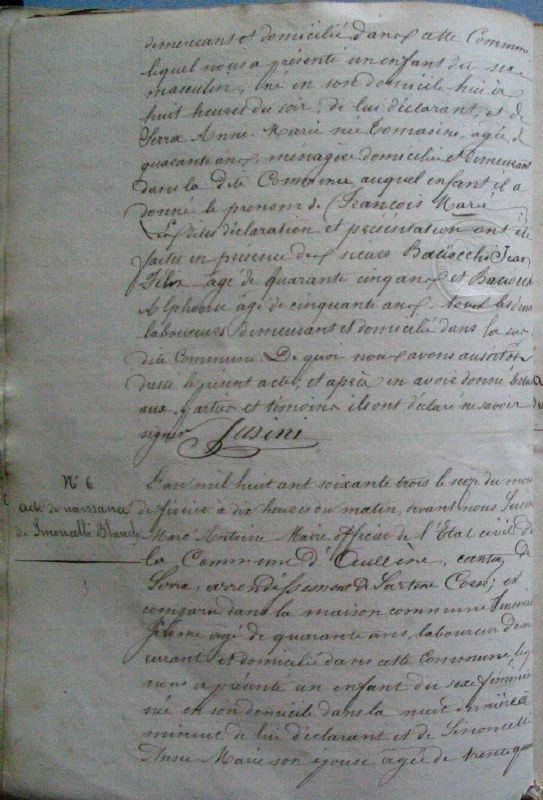 demeurant et domicilié dans cette Commune
lequel nous a présenté un enfant du sexe
masculin, né en son domicile hui à
huit heures du soir, de lui déclarant, et de
Serra Anne Marie née Tomasini, agée de
quarante ans, ménagère domiciliée et demeurant
dans la dite Commune auquel enfant il a
donné le prenom de François Marie
Les dites déclaration et présentation ont été
faites en presence des sieurs Baciocchi Jean
Félix agé de quarante cinq ans et Baciocchi
Alphonse agé de cinquante ans tous les deux
laboureurs demeurant et domicilié dans la sus
dite Commune. De quoi nous avons aussitôt
dressé le présent acte, et après en avoir donné lecture
aux parties et témoins ils ont déclaré ne savoir
signer Susini
N° 6
acte de naissance
de Simonelli Blanche
L'an mil huit cent soixante trois le seize du mois
de fevrier à dix heures du matin, devant nous Susini
Marc Antoine Maire officier de l'Etat civil de
la Commune d'Aullène, canton de
Serra, arrondissement de Sartène Corse, est
comparu dans la maison commune Simonelli
agé de quarante ans, laboureur deme
urant et domicilié dans cette Commune, lequel
nous a présenté un enfant du sexe féminin
née en son domicile dans la nuit dernière à
minuit de lui déclarant et de Simonelli
Anne Marie son epouse agée de trente